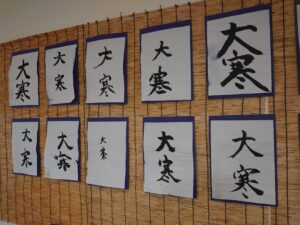 大寒
大寒
大寒
大寒
大寒
大寒
大寒
大寒
大寒
大寒